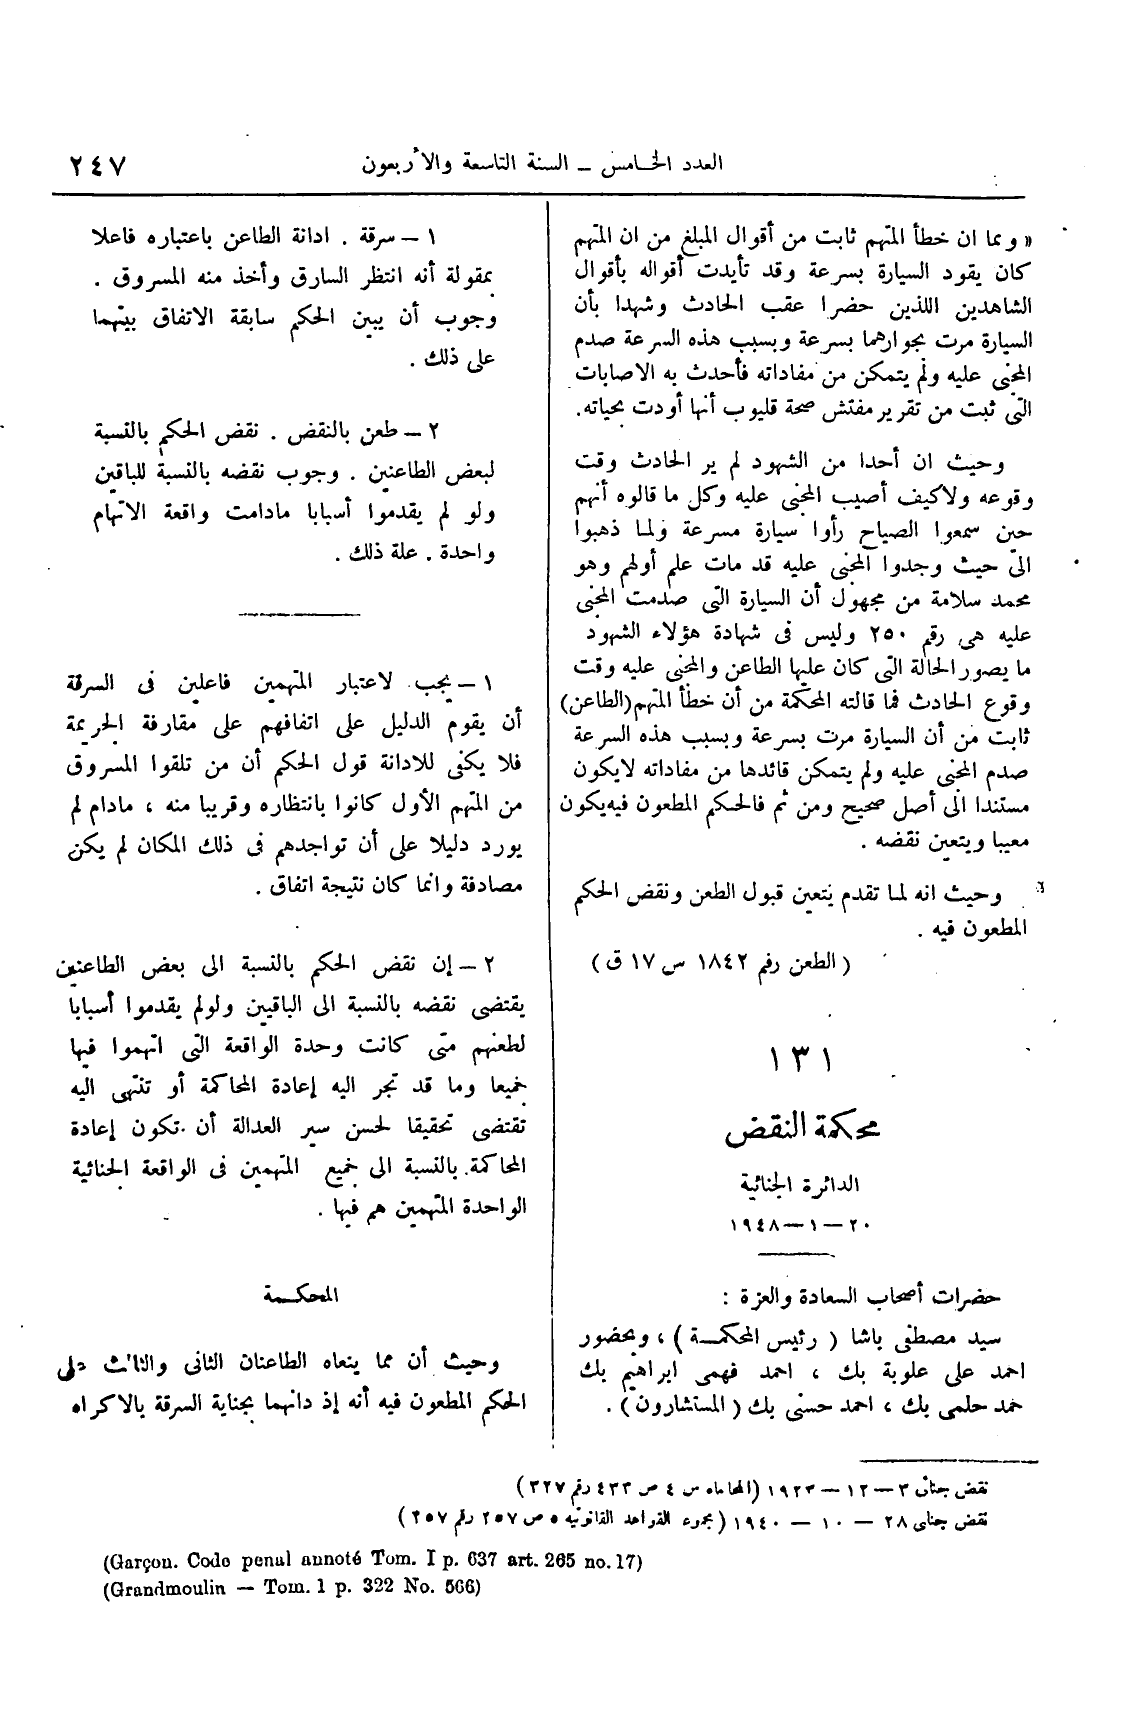 العدد الخامس – السنة التاسعة والأربعون
٢٤٧
« وبما ان خطأ المتهم ثابت من أقوال المبلغ من ان المتهم
كان يقود السيارة بسرعة وقد تأيدت أقواله بأقوال
الشاهدين اللذين حضرا عقب الحادث وشهدا بأن
السيارة مرت بجوارهما بسرعة وبسبب هذه السرعة صدم
المجنى عليه ولم يتمكن من مفاداته فأحدث به الاصابات
التى ثبت من تقرير مفتش صحة قليوب أنها أودت بحياته.
وحيث ان أحدا من الشهود لم ير الحادث وقت
وقوعه ولا كيف أصيب المجنى عليه وكل ما قالوه أنهم
حين سمعوا الصياح رأوا سيارة مسرعة ولما ذهبوا
الى حيث وجدوا المجنى عليه قد مات علم أولهم وهو
محمد سلامة من مجهول أن السيارة التى صدمت المجنى
عليه هى رقم ٢٥٠ وليس فى شهادة هؤلاء الشهود
ما يصور الحالة التى كان عليها الطاعن والمجنى عليه وقت
وقوع الحادث فما قالته المحكمة من أن خطأ المتهم (الطاعن)
ثابت من أن السيارة مرت بسرعة وبسبب هذه السرعة
صدم المجنى عليه ولم يتمكن قائدها من مفاداته لا يكون
مستندا الى أصل صحيح ومن ثم فالحكم المطعون فيه يكون
معيبا ويتعين نقضه .
وحيث انه لما تقدم يتعين قبول الطعن ونقض الحكم
المطعون فيه .
( الطعن رقم ١٨٤٢ س ١٧ ق )
١٣١
محكمة النقض
الدائرة الجنائية
٢٠ – ١ – ١٩٤٨
حضرات أصحاب السعادة والعزة :
سيد مصطفى باشا ( رئيس المحكمة ) ، وبحضور
احمد على علوبة بك ، احمد فهمى ابراهيم بك
حمد حلمى بك ، احمد حسنى بك ( المستشارون ) .
١ – سرقة . ادانة الطاعن باعتباره فاعلا
بمقولة أنه انتظر السارق وأخذ منه المسروق .
وجوب أن يبين الحكم سابقة الاتفاق بينهما
على ذلك .
٢ – طعن بالنقض . نقض الحكم بالنسبة
لبعض الطاعنين . وجوب نقضه بالنسبة للباقين
ولو لم يقدموا أسبابا مادامت واقعة الاتهام
واحدة . علة ذلك .
١ – يجب لاعتبار المتهمين فاعلين فى السرقة
أن يقوم الدليل على اتفاقهم على مقارفة الجريمة
فلا يكفى للادانة قول الحكم أن من تلقوا المسروق
من المتهم الأول كانوا بانتظاره وقريبا منه ، مادام لم
يورد دليلا على أن تواجدهم فى ذلك المكان لم يكن
مصادفة وانما كان نتيجة اتفاق .
٢ – إن نقض الحكم بالنسبة الى بعض الطاعنين
يقتضى نقضه بالنسبة الى الباقين ولو لم يقدموا أسبابا
لطعنهم متى كانت وحدة الواقعة التى اتهموا فيها
جميعا وما قد تجر اليه إعادة المحاكمة أو تنتهى اليه
تقتضى تحقيقا لحسن سير العدالة أن تكون إعادة
المحاكمة بالنسبة الى جميع المتهمين فى الواقعة الجنائية
الواحدة المتهمين هم فيها .
المحكمة
وحيث أن مما ينعاه الطاعنان الثانى والثالث على
الحكم المطعون فيه أنه إذ دانهما بجناية السرقة بالاكراه
نقض جنائى ٣ – ١٢ – ١٩٢٣ (المحاماه س ٤ ص ٤٣٣ رقم ٣٢٧)
نقض جنائى ٢٨ – ١٠ – ١٩٤٠ (مجموعة القواعد القانونيه ٥ ص ٢٥٧ رقم ٢٥٧)
(Garçon. Code penal annoté Tom. I p. 637 art. 265 no. 17)
(Grandmoulin — Tom. 1 p. 322 No. 566)